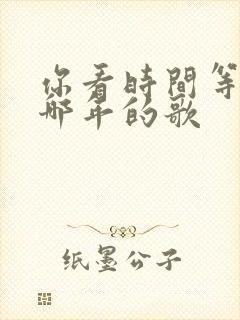 你看時間等
那年的歌
纸墨公子